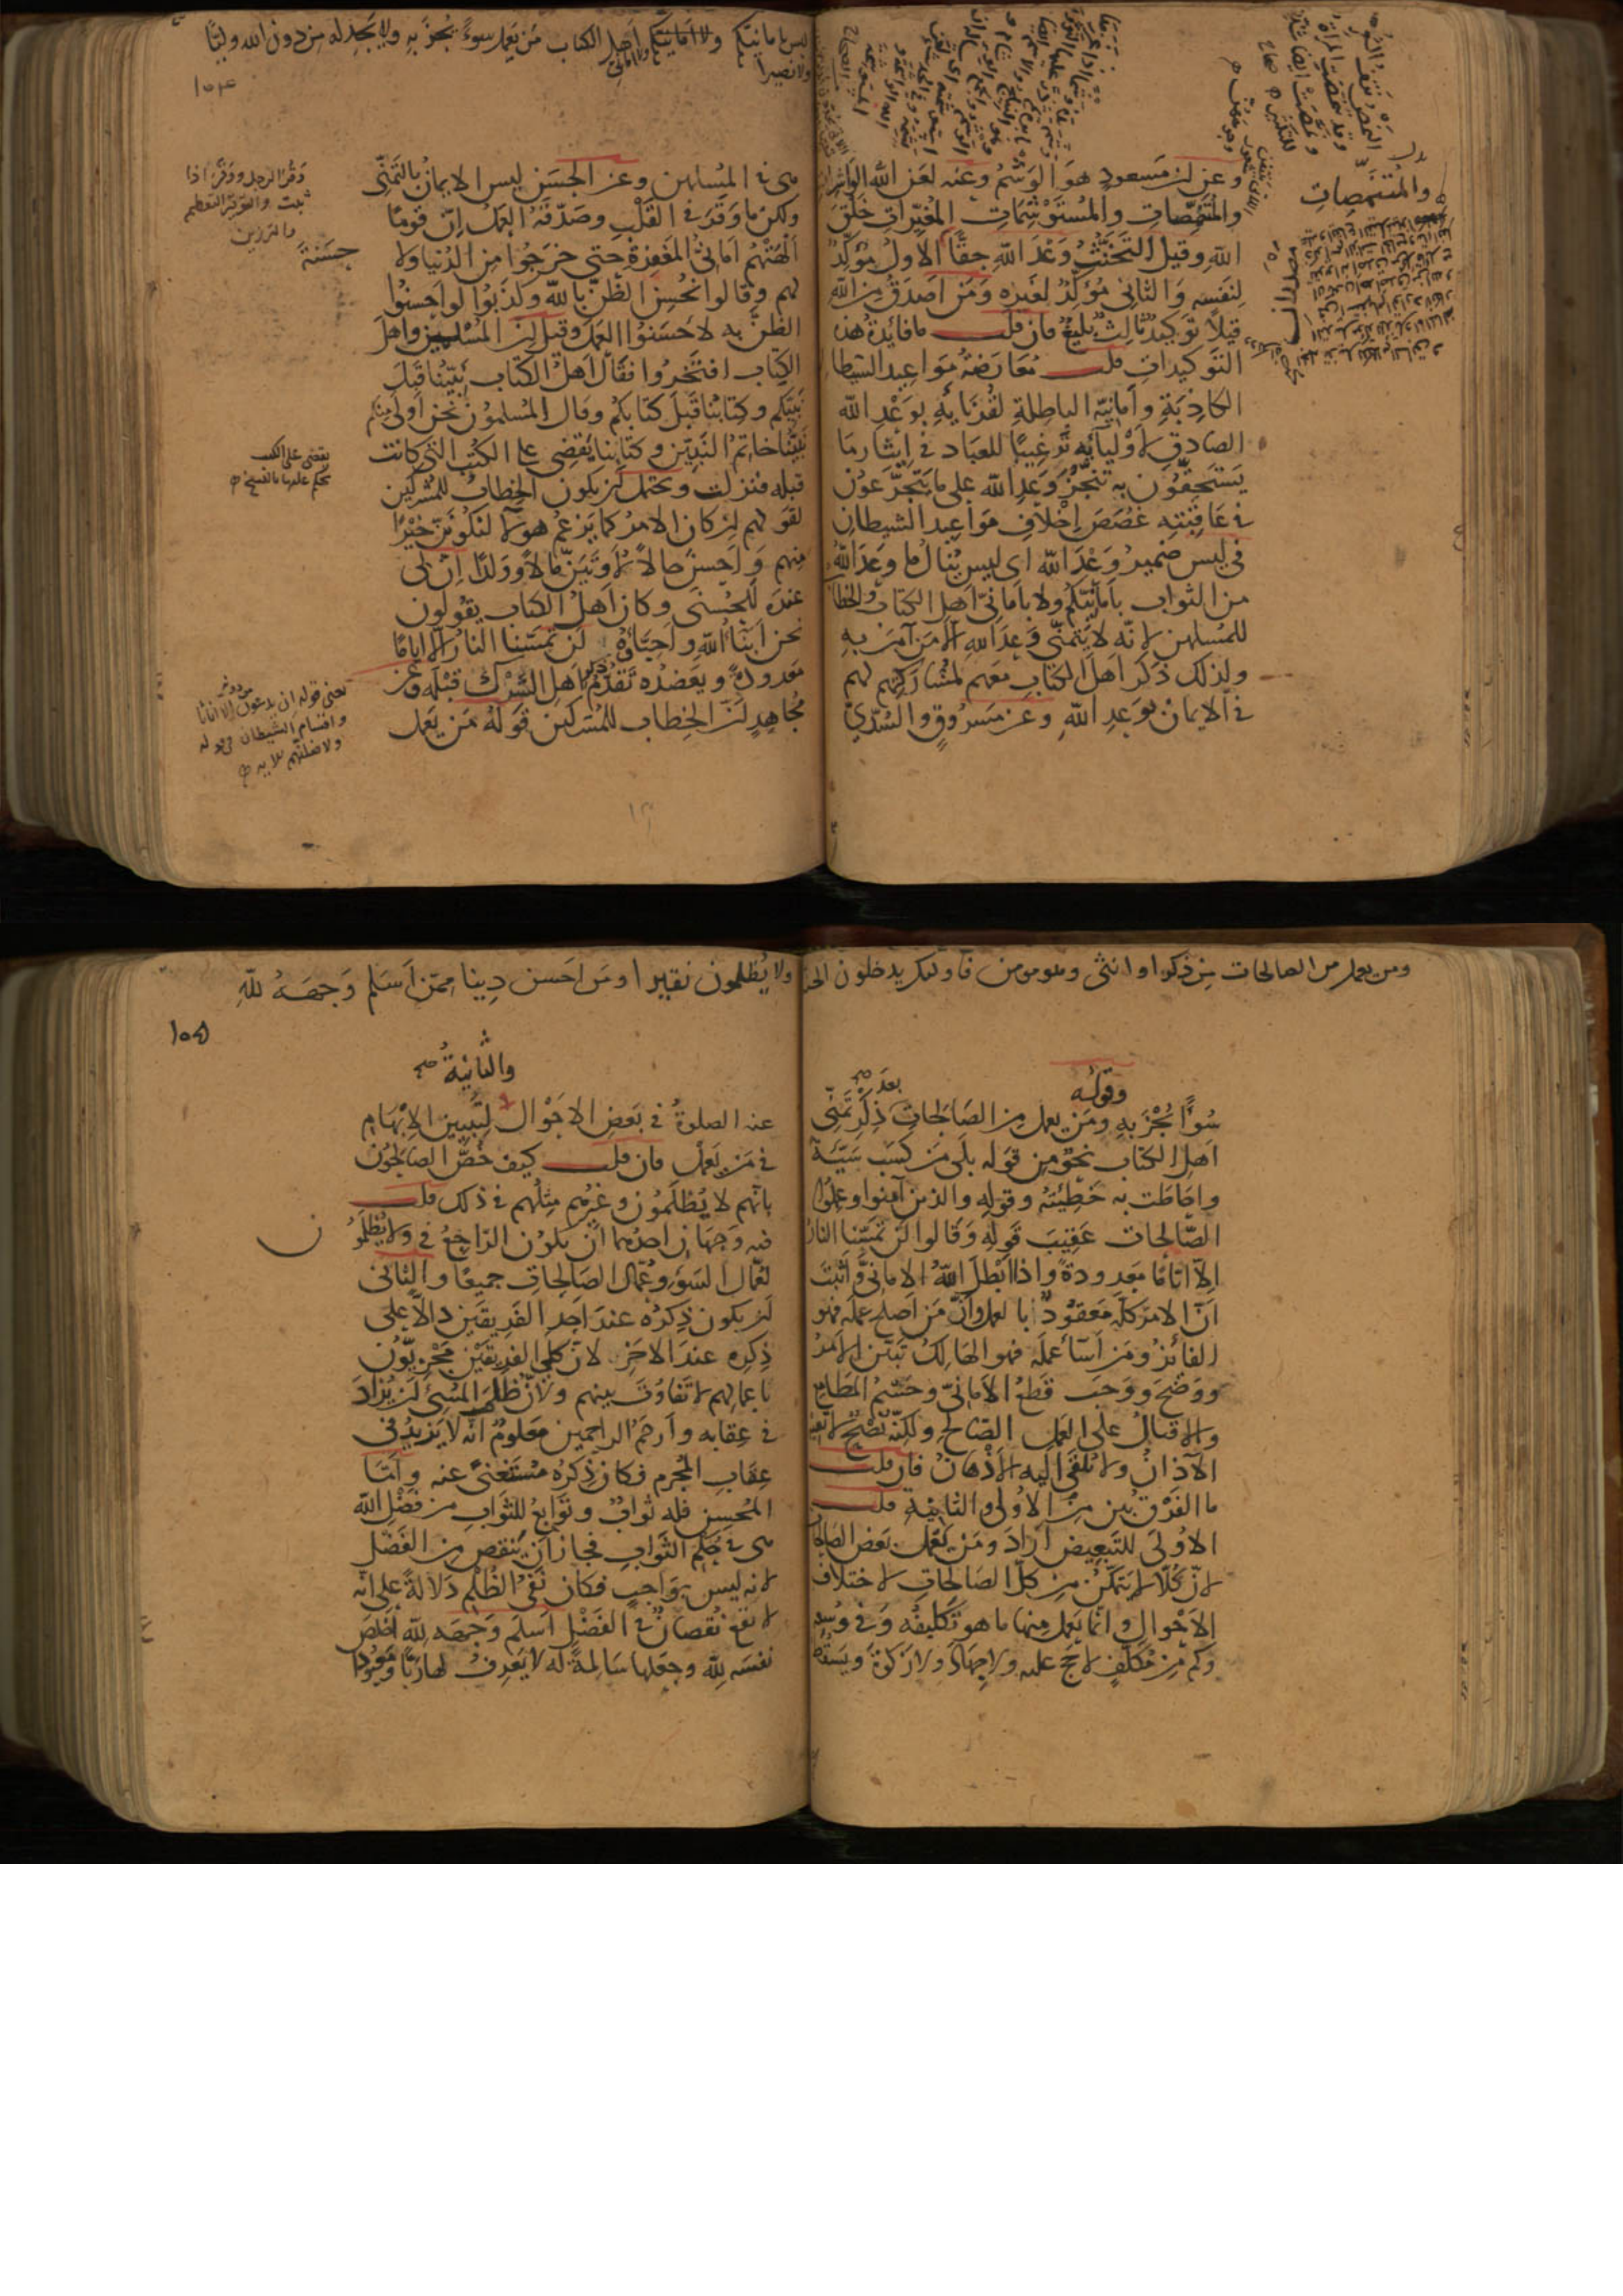 وعن ابن مسعود هو الوشم وعنه لعن الله الواشرات
والمتنمصات والمستوشمات المغيرات خلق
الله وقيل التخنث وعد الله حقا الاول مؤكد
لنفسه والثانى مؤكد لغيره ومن اصدق من الله
قيلا توكيد ثالث بليغ فان قلت ما فايدة هذه
التوكيدات قلت معارضة مواعيد الشيطان
الكاذبة وامانيه الباطلة لقرنايه بوعد الله
الصادق لاوليآيه ترغيبا للعباد فى ايثار ما
يستحقون به تنجز وعد الله على ما يتجرعون
فى عاقبته غصص اخلاف مواعيد الشيطان
فى ليس ضمير وعد الله اى ليس ينال ما وعد الله
من الثواب بامانيكم ولا بامانى اهل الكتاب والخطاب
للمسلمين لانه لا يتمنى وعد الله الا من آمن به
ولذلك ذكر اهل الكتاب معهم لمشاركتهم لهم
فى الايمان بوعد الله وعن مسروق والسدى
والمتنمصات
مصدران
ليس بامانيكم ولا امانى اهل الكتاب من يعمل سوءا يجز به ولا يجد له من دون الله وليا
ولا نصيرا
١٥٤
هى فى المسلمين وعن الحسن ليس الايمان بالتمنى
ولكن ما وقر فى القلب وصدقه العمل ان قوما
الهتهم امانى المغفرة حتى خرجوا من الدنيا ولا
حسنة
لهم وقالوا نحسن الظن بالله وكذبوا لو احسنوا
الظن به لاحسنوا العمل وقيل ان المسلمين واهل
الكتاب افتخروا فقال اهل الكتاب نبينا قبل
نبيكم وكتابنا قبل كتابكم وقال المسلمون نحن اولى منكم
نبينا خاتم النبيين وكتابنا يقضى على الكتب التى كانت
قبله فنزلت ويحتمل ان يكون الخطاب للمشركين
لقولهم ان كان الامر كما يزعم هولآ لنكونن خيرا
منهم واحسن حالا لاوتين مالا وولدا ان لى
عنده للحسنى وكان اهل الكتاب يقولون
نحن ابنآ الله واحباؤه لن تمسنا النار الا اياما
معدودة ويعضده تقدم ذكر اهل الشرك قبله وعن
مجاهد ان الخطاب للمشركين قوله من يعمل
وقر الرجل ووقر اذا
ثبت والتوقير التعظيم
والترزين
يقضى على الكتب
يحكم عليها بالنسخ
يعنى قوله ان يدعون من دونه الا اناثا
واقسام الشيطان فى قوله
ولاضلنهم الآيه
ومن يعمل من الصالحات من ذكر او انثى وهو مومن فاولئك يدخلون الجنة
وقوله
سوءا يجز به ومن يعمل من الصالحات بعد ذكر تمنى
اهل الكتاب نحو من قوله بلى من كسب سيئة
واحاطت به خطيئته وقوله والذين آمنوا وعملوا
الصالحات عقيب قوله وقالوا لن تمسنا النار
الا اياما معدودة واذا ابطل الله الامانى واثبت
ان الامر كله معقود بالعمل وان من اصلح عمله فهو
الفائز ومن اسآ عمله فهو الهالك تبين الامر
ووضح ووجب قطع الامانى وحسم المطامع
والاقبال على العمل الصالح ولكنه نصح لا تعيه
الآذان ولا تلقى اليه الاذهان فان قلت
ما الفرق بين من الاولى والثانية قلت
الاولى للتبعيض اراد ومن يعمل بعض الصالحات
لان كلا لا يتمكن من كل الصالحات لاختلاف
الاحوال وانما يعمل منها ما هو تكليفه وفى وسعه
وكم من مكلف لا حج عليه ولا جهاد ولا زكوة ويسقط
ولا يظلمون نقيرا ومن احسن دينا ممن اسلم وجهه لله
١٥٥
والثانية صح
عنه الصلوة فى بعض الاحوال لتبيين الابهام
فى من يعمل فان قلت كيف خص الصالحون
بانهم لا يظلمون وغيرهم مثلهم فى ذلك قلت
فيه وجهان احدهما ان يكون الراجع فى ولا يظلمون
لعمال السوء وعمال الصالحات جميعا والثانى
ان يكون ذكره عند احد الفريقين دالا على
ذكره عند الاخر لان كلى الفريقين مجزيون
باعمالهم لا تفاوت بينهم ولان ظلم المسئ ان يزاد
فى عقابه وارحم الراحمين معلوم انه لا يزيد فى
عقاب المجرم فكان ذكره مستغنى عنه واما
المحسن فله ثواب وتوابع للثواب من فضل الله
هى فى حكم الثواب فجاز ان ينقص من الفضل
لانه ليس بواجب فكان نفى الظلم دلالة على انه
لا يقع نقصان فى الفضل اسلم وجهه لله اخلص
نفسه لله وجعلها سالمة له لا يعرف لها ربا ومعبودا